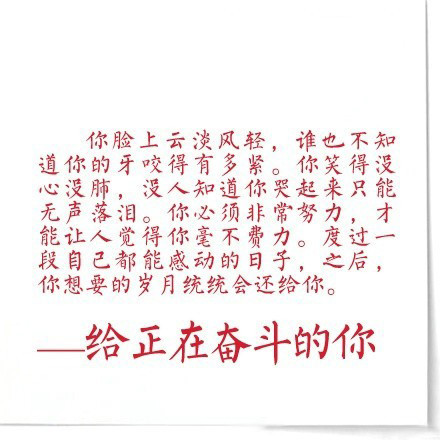 你脸上云淡风轻，谁也不知
道你的牙咬得有多紧。你笑得没
心没肺，没人知道你哭起来只能
无声落泪。你必须非常努力，才
能让人觉得你毫不费力。度过一
段自己都能感动的日子，之后，
你想要的岁月统统会还给你。
——给正在奋斗的你